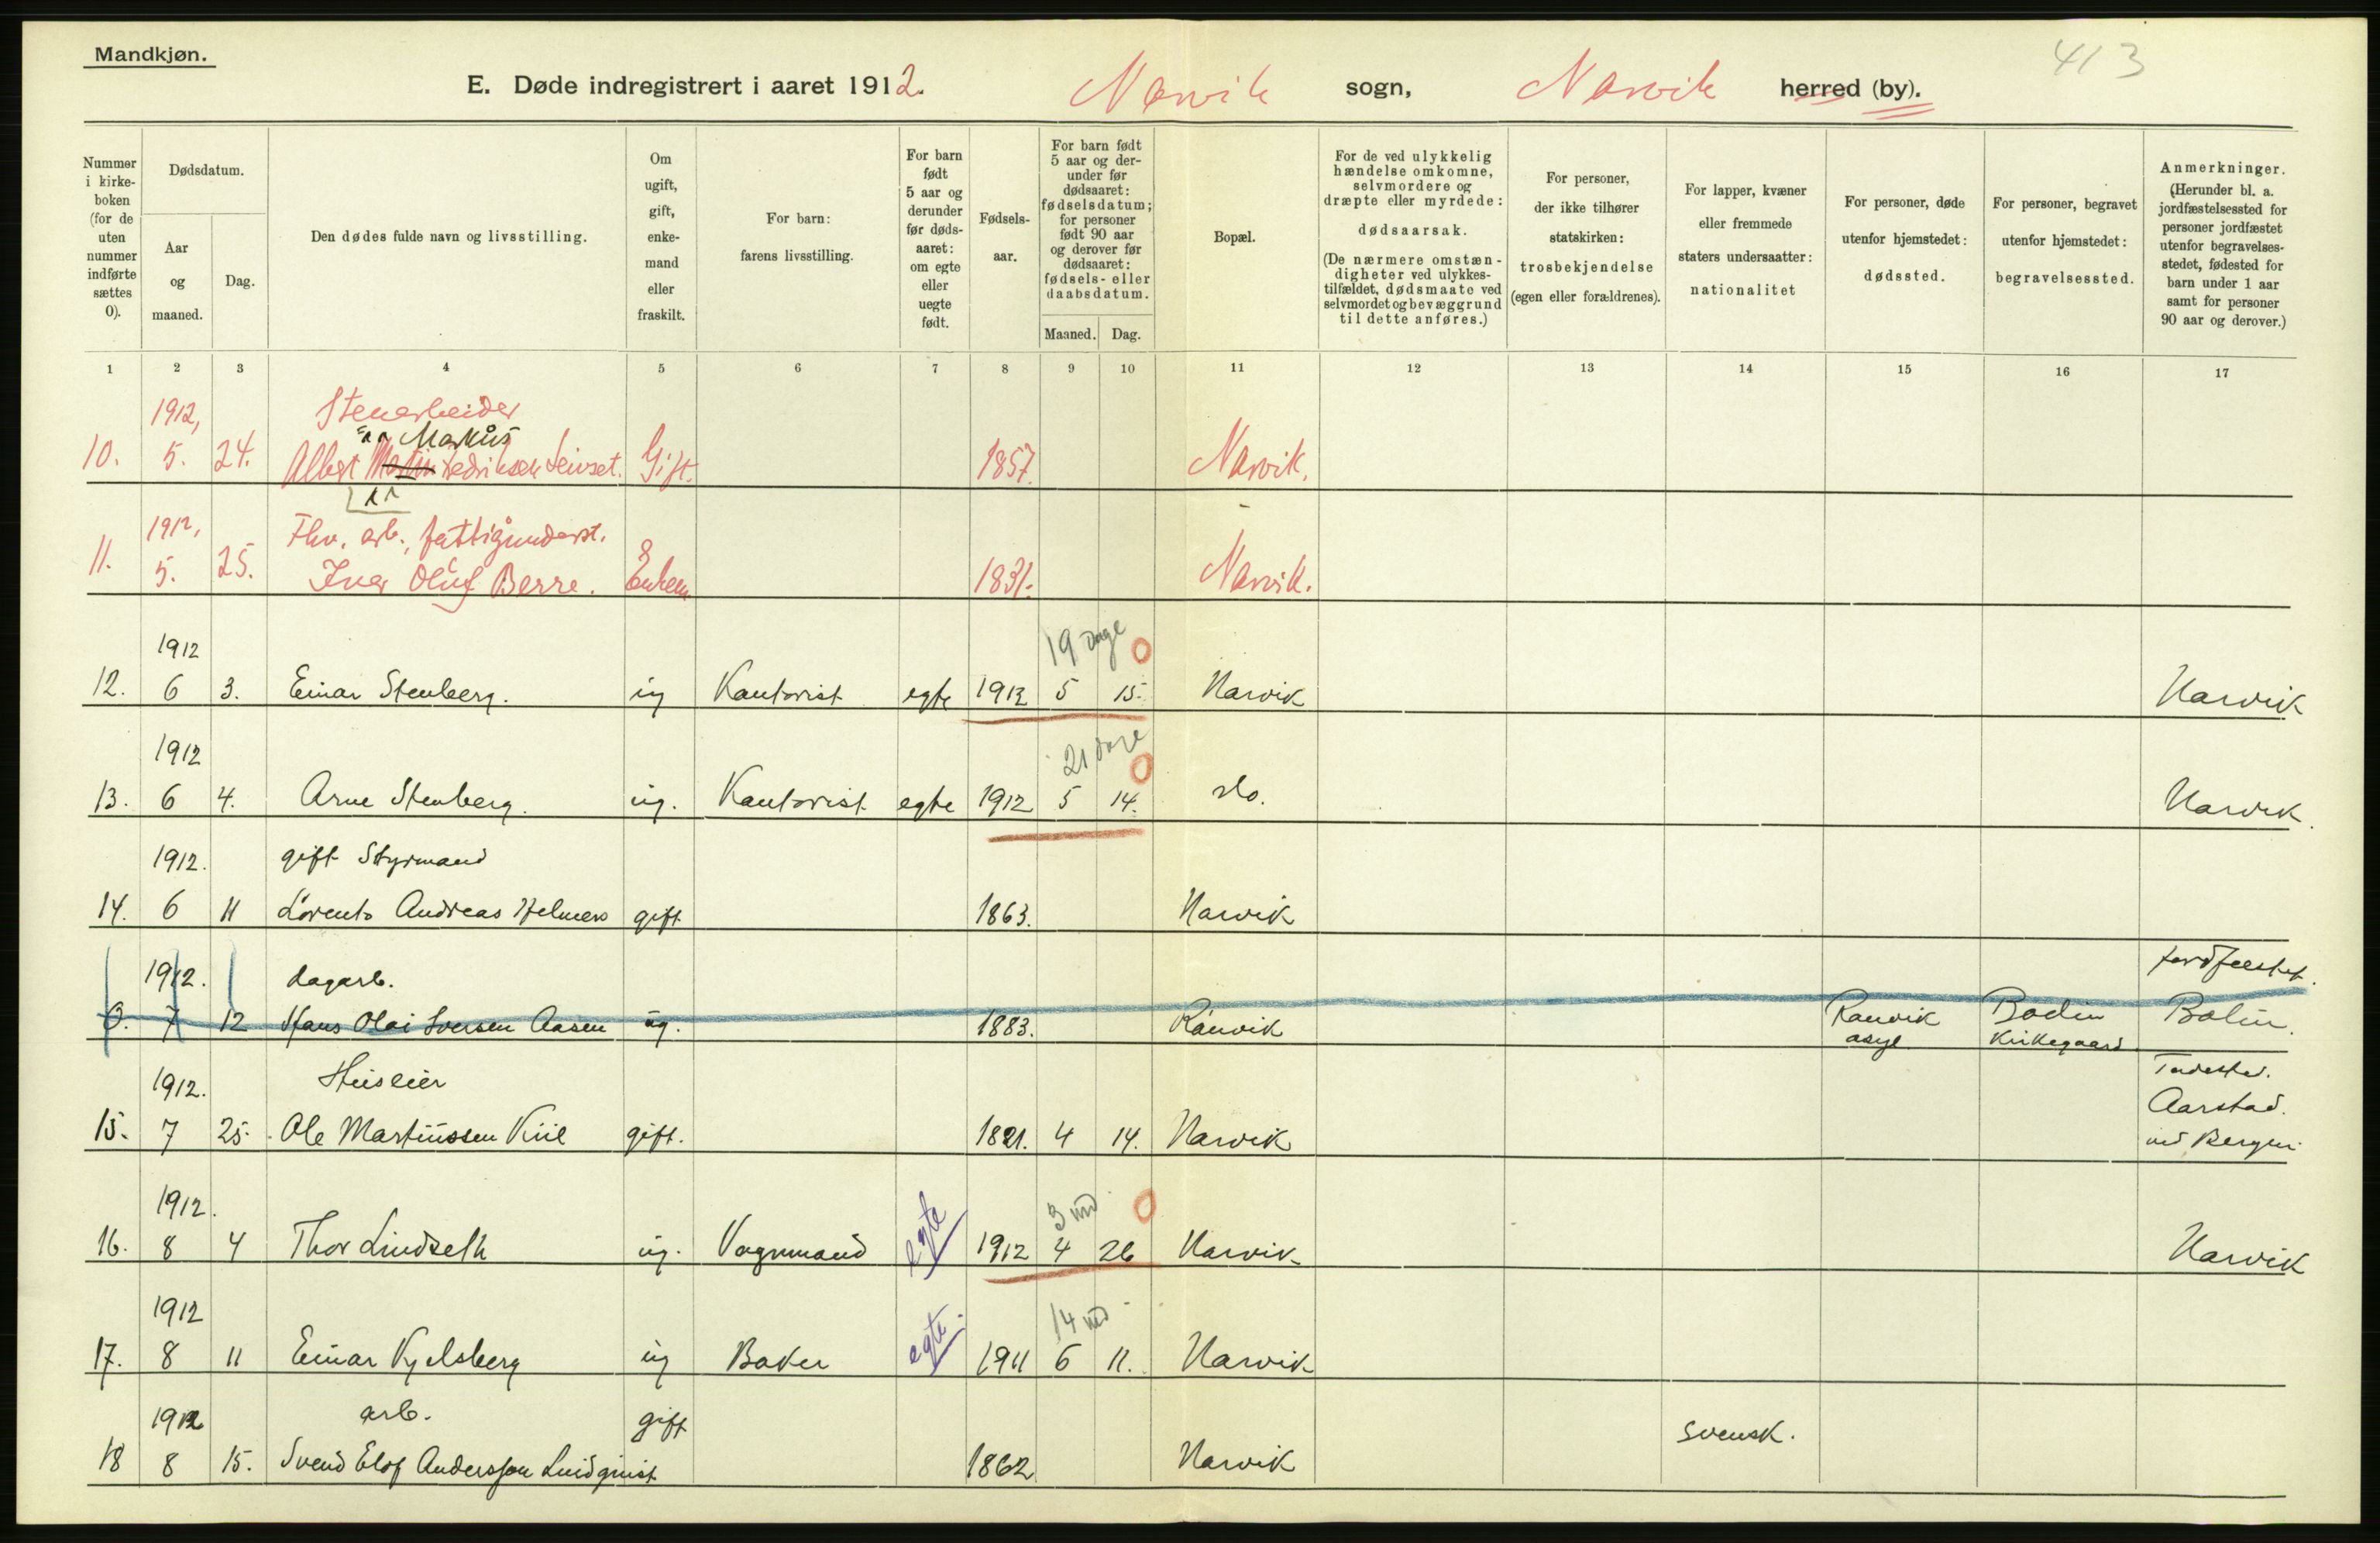 Mandkjøn.
413
E. Døde indregistrert i aaret 1912. Narvik sogn, Narvik herred (by).
Nummer i kirkeboken (for de uten nummer indførte sættes 0).
Dødsdatum.
Aar og maaned.
Dag.
Den dødes fulde navn og livsstilling.
Om ugift, gift, enkemand eller fraskilt.
For barn: farens livsstilling.
For barn født 5 aar og derunder før dødsaaret: om egte eller uegte født.
Fødselsaar.
For barn født 5 aar og derunder før dødsaaret: fødselsdatum; for personer født 90 aar og derover før dødsaaret: fødsels- eller daabsdatum.
Maaned. Dag.
Bopæl.
For de ved ulykkelig hændelse omkomne, selvmordere og dræpte eller myrdede: dødsaarsak. (De nærmere omstændigheter ved ulykkestilfældet, dødsmaate ved selvmordet og bevæggrund til dette anføres.)
For personer, der ikke tilhører statskirken: trosbekjendelse (egen eller forældrenes).
For lapper, kvæner eller fremmede staters undersaatter: nationalitet
For personer, døde utenfor hjemstedet: dødssted.
For personer, begravet utenfor hjemstedet: begravelsessted.
Anmerkninger. (Herunder bl. a. jordfæstelsessted for personer jordfæstet utenfor begravelsesstedet, fødested for barn under 1 aar samt for personer 90 aar og derover.)
1 2 3 4 5 6 7 8 9 10 11 12 13 14 15 16 17
1912, Stenarbeider
Markus
10. 5. 24. Albert Martin Fedriksen Leivset. Gift. 1857. Narvik.
1912, Fhv. arb., fattigunderst.
11. 5. 25. Iver Oluf Berre. Enkem. 1831. Narvik.
1912 19 dage 0
12. 6 3. Einar Stenberg. ug Kantorist egte 1912 5 15. Narvik Narvik
1912 21 dage 0
13. 6 4. Arne Stenberg. ug. Kantorist egte 1912 5 14. do. Narvik.
1912. gift Styrmand
14. 6 11 Lorents Andreas Helmers gift 1863. Narvik
1912. dagarb. jordfæstet.
0. 7 12 Hans Olai Iversen Aasen ug. 1883. Rønvik Rønvik asyl Bodin Kirkegaard Bodin.
1912. Huseier Fødested.
Aarstad.
15. 7 25. Ole Martinussen Kiil gift. 1821. 4 14. Narvik ved Bergen.
1912. 3 md 0
16. 8 4 Thor Lindseth ug. Vognmand egte 1912 4 26 Narvik Narvik
1912 14 md
17. 8 11 Einar Kjelsberg ug Baker egte. 1911 6 11. Narvik
1912 arb. gift svensk.
18 8 15. Svend Elof Andersson Lindqvist 1862 Narvik